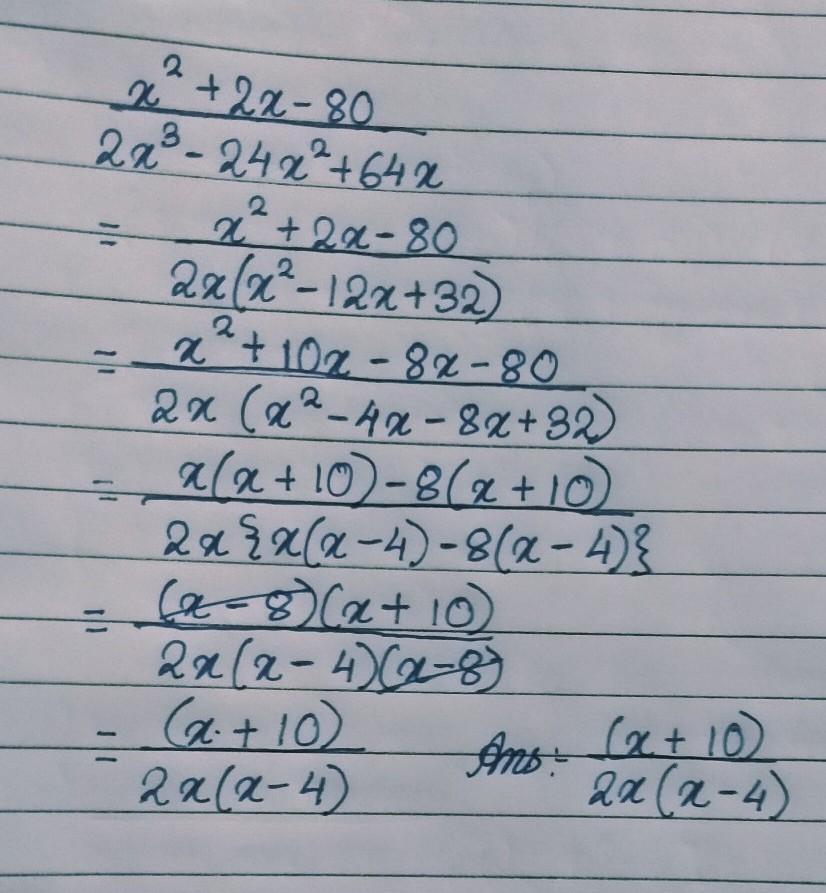 x² + 2x - 80
2x³ - 24x² + 64x
= x² + 2x - 80
2x(x² - 12x + 32)
= x² + 10x - 8x - 80
2x (x² - 4x - 8x + 32)
= x(x + 10) - 8(x + 10)
2x{x(x - 4) - 8(x - 4)}
= (x - 8)(x + 10)
2x(x - 4)(x - 8)
= (x + 10) Ans:- (x + 10)
2x(x - 4) 2x(x - 4)